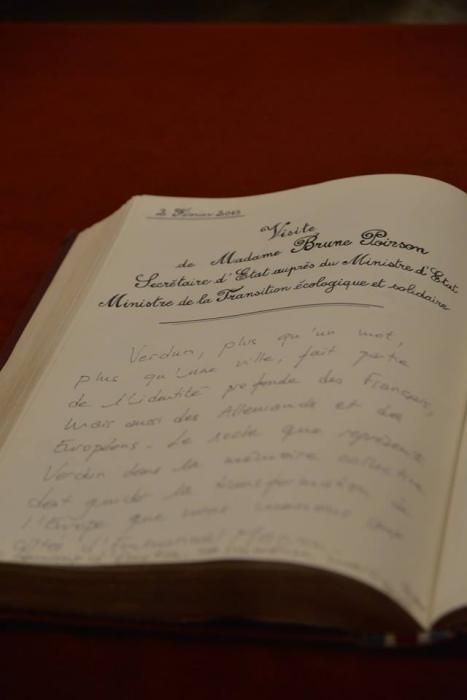 2 Février 2018
Visite
de Madame Brune Poirson
Secrétaire d'Etat auprès du Ministre d'Etat
Ministre de la Transition écologique et solidaire
Verdun, plus qu'un mot,
plus qu'une ville, fait partie
de l'identité profonde des Français,
mais aussi des Allemands et des
Européens. Le socle que représente
Verdun dans la mémoire collective
doit guider la transformation de
l'Europe que nous
côtés d'Emmanuel Macron